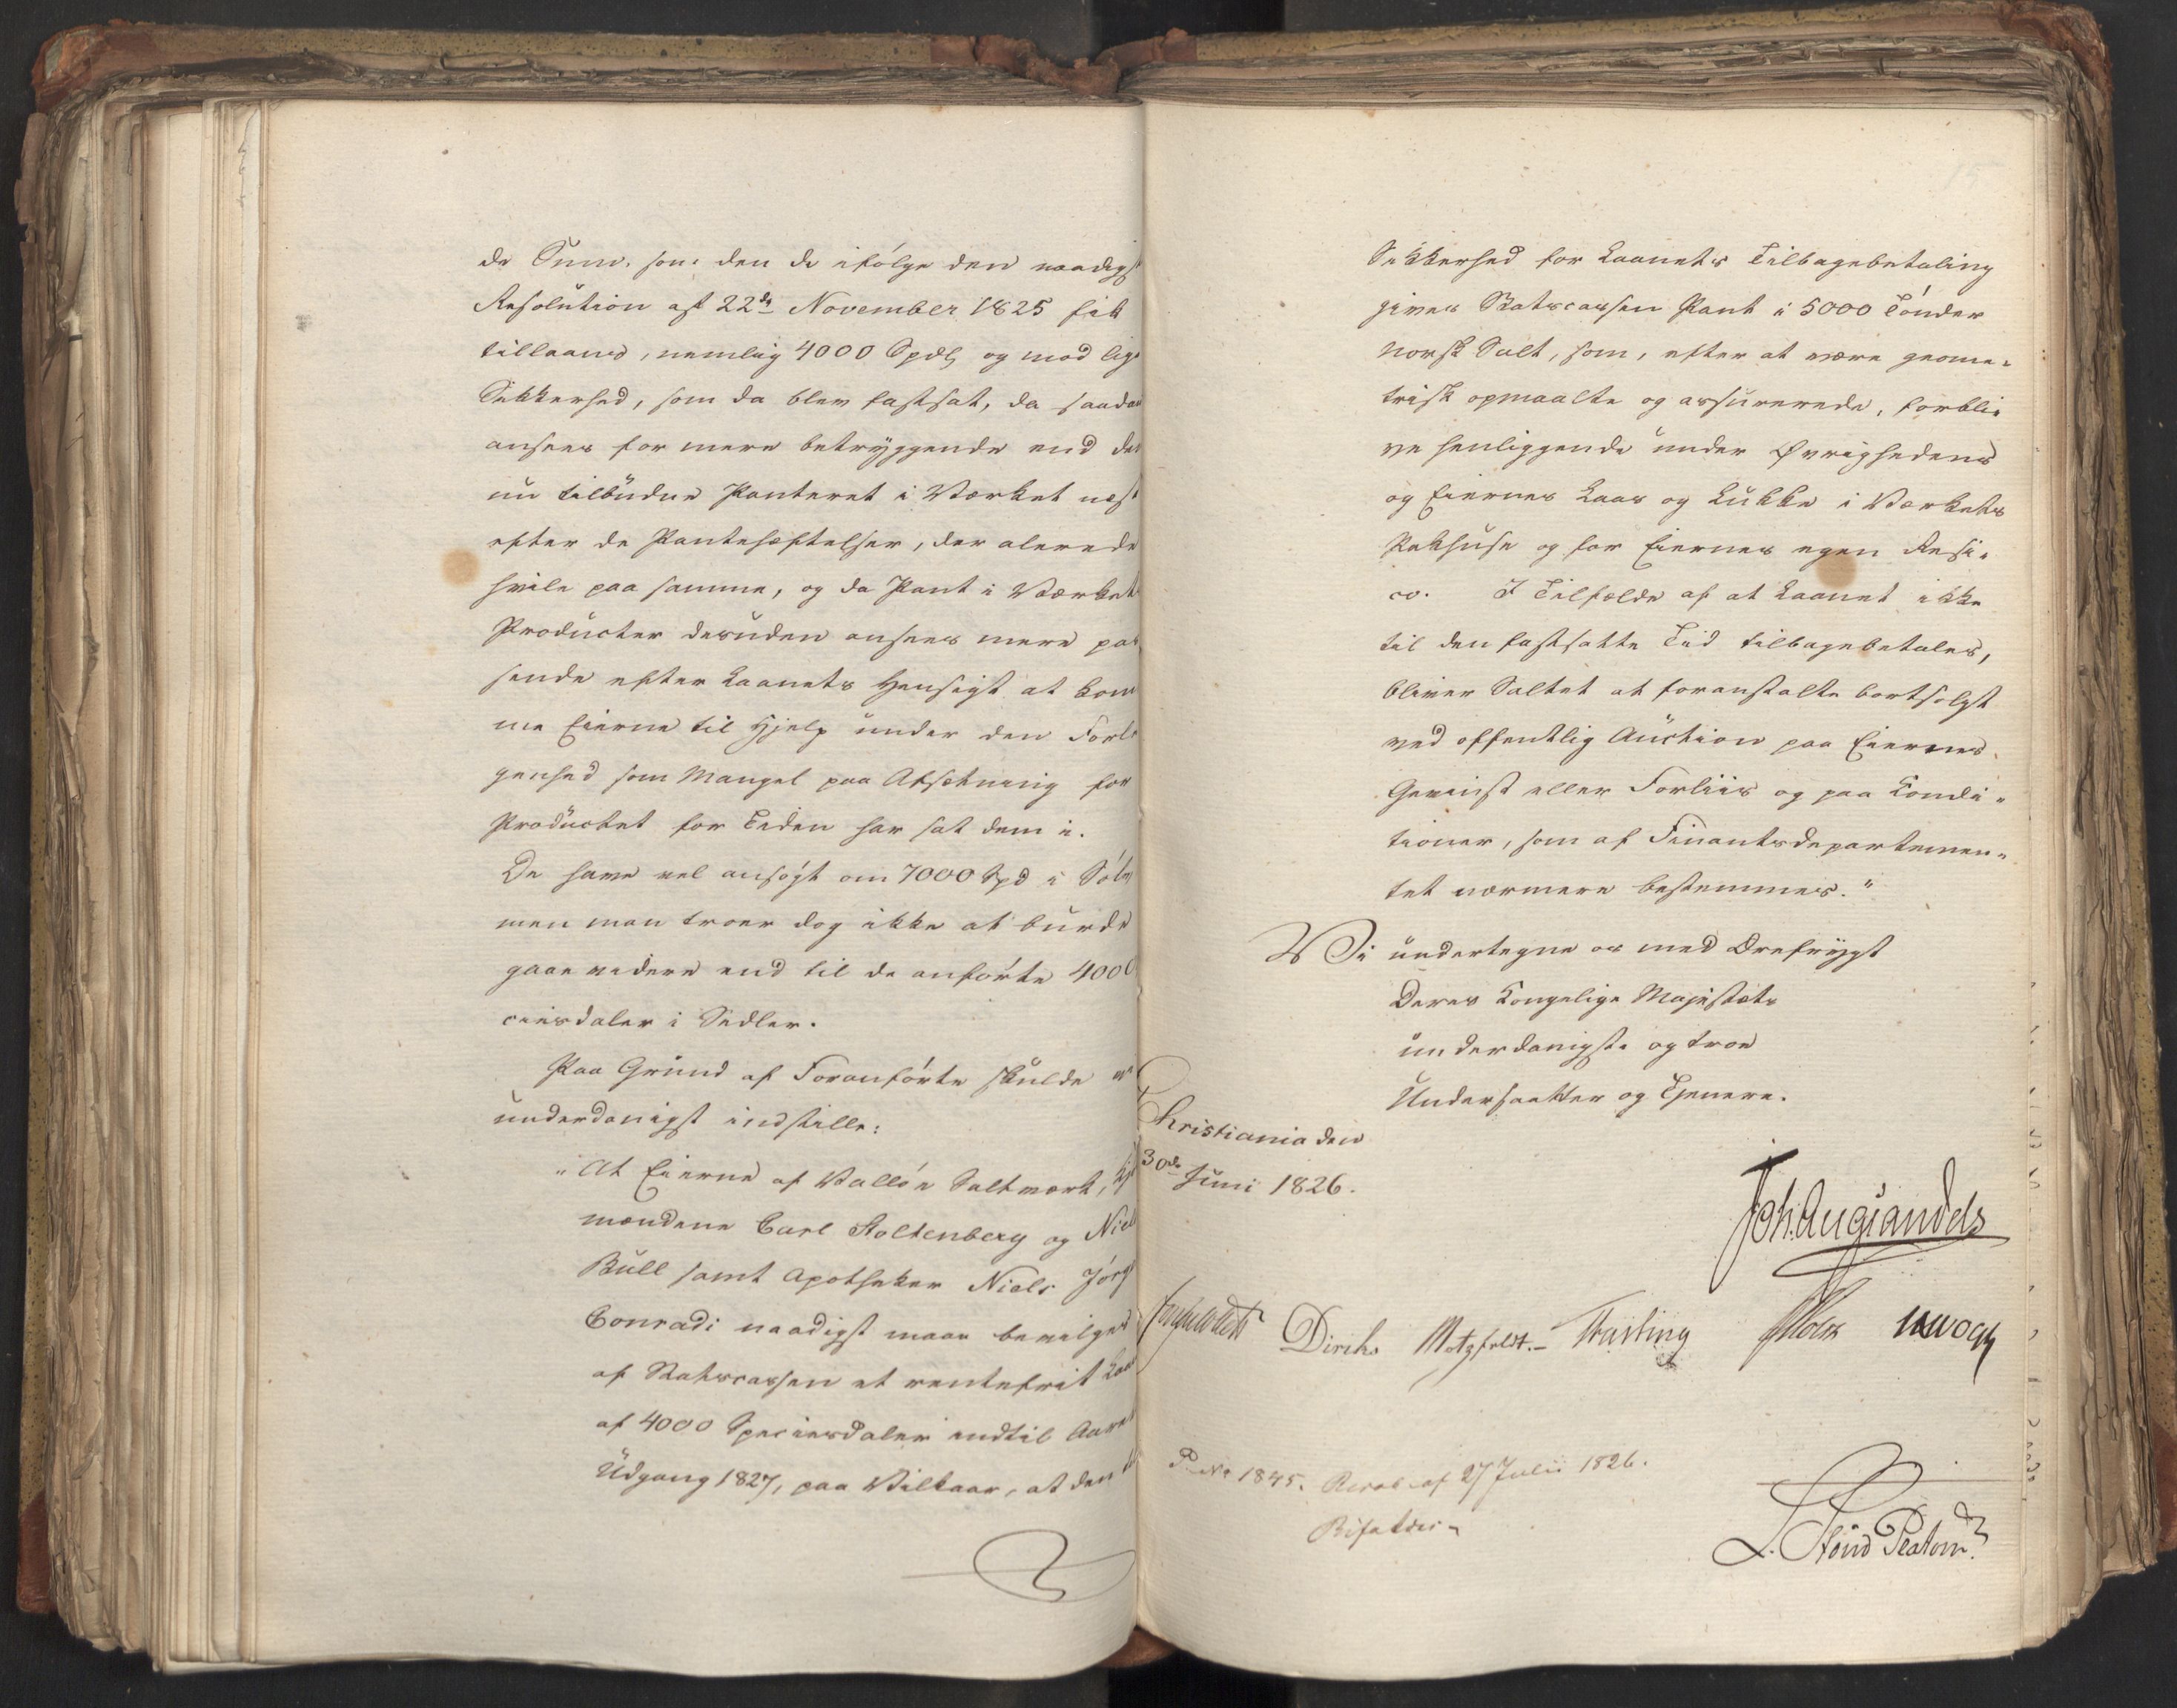 de Sum, som den de ifölge den naadigst
Resolution af 22de November 1825 fik
tillaans, nemlig 4000 Spdlr og mod lige
Sikkerhed, som da blev fastsat, da saadan
ansees for mere betryggende end den
nu tilbudne Panteret i Værket næst
efter de Pantehæftelser, der alerede
hvile paa samme, og da Pant i Værkets
Producter desuden ansees mere pas
sende efter Laanets Hensigt at kom
me Eierne til Hjelp under den Forle
genhed som Mangel paa Afsætning for
Productet for Tiden har sat dem i.
De have vel ansøgt om 7000 Spd i Sölv
men man troer dog ikke at burde
gaae videre end til de anførte 4000
ciesdaler i Sedler.
Paa Grund af Foranförte skulde
underdanigst indstille:
"At Eierne af Vallöe Saltværk, Kjøb
mændene Carl Stoltenberg og Niels
Bull samt Apotheker Niels Jörg
Conradi naadigst maae bevilges
af Statscassen et rentefrit Laan
af 4000 Speciesdaler indtil Aarets
Udgang 1827, paa Vilkaar, at den til
Sikkerhed for Laanets Tilbagebetaling
gives Statscassen Pant i 5000 Tönder
norsk Salt, som, efter at være geome-
trisk opmaalte og assurerede, forbli-
ve henliggende under Øvrighedens
og Eiernes Laas og Lukke i Værkets
Pakhuse og for Eiernes egen Resi-
co. I Tilfælde af at Laanet ikke
til den fastsatte Tid tilbagebetales,
bliver Saltet at foranstalte bortsolgt
ved offentlig Auction paa Eiernes
Gevinst eller Forliis og paa Condi-
tioner, som af Finantsdepartemen-
tet nærmere bestemmes."
Vi undertegne os med Ærefrygt
Deres Kongelige Majestæts
underdanigste og troe
Undersaatter og Tjenere.
Christiania den
30de Juni 1826.
Joh. Aug. Sandels
Diriks Motzfeldt.- Treschow Holst
P. No 1845. Resol. af 27 Julii 1826.
Bifaldes
L. Stoud Platou